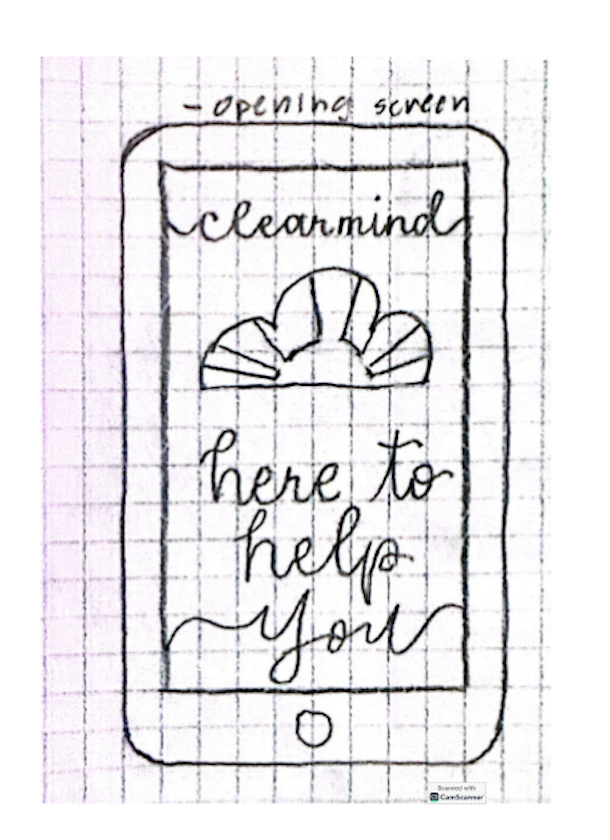 - opening screen
clearmind
here to
help
you
Scanned with
CamScanner